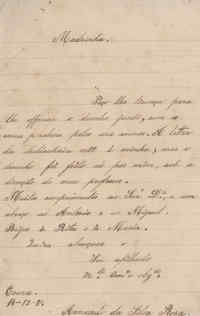 Madrinha.
Peço lhe licença para
lhe offerecer o desenho junto, com a
minha pelos seus annos. A letra
da dedicatoria não é minha, mas o
desenho foi feito só por mim, sob a
direcção do meu professor.
Muitos cumprimentos ao Snr. Dr., e um
abraço ao Antonio e ao Miguel.
Beijos á Bertha e á Maria.
Seu afilhado
m.to am.o obg.do
Manuel da Silva Rosa